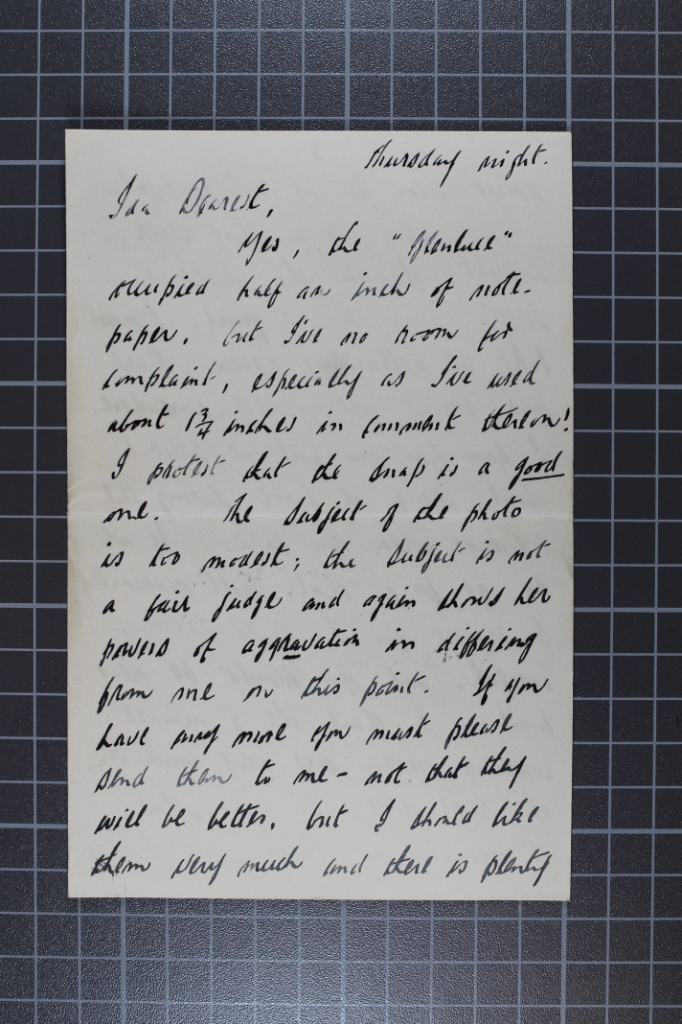 Thursday night.
Ida Dearest,
Yes, the "Glenluce"
occupied half an inch of note-
paper, but I've no room for
complaint, especially as I've used
about 1 3/4 inches in comment thereon!
I protest that the snap is a good
one. The subject of the photo
is too modest; the subject is not
a fair judge and again shows her
powers of aggravation in differing
from me on this point. If you
have any more you must please
send them to me - not that they
will be better, but I should like
them very much and there is plenty